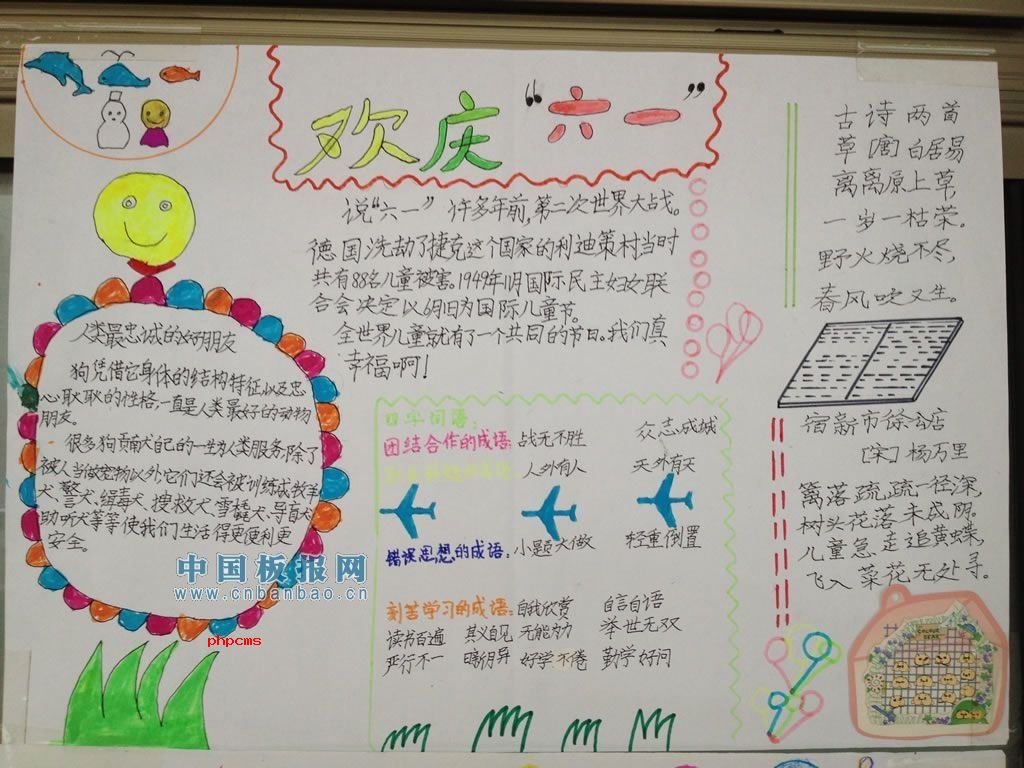 欢庆“六一”
说“六一” 许多年前,第二次世界大战。
德国洗劫了捷克这个国家的利迪策村,当时
共有88名儿童被害。1949年11月国际民主妇女联
合会决定以6月1日为国际儿童节。
全世界儿童就有了一个共同的节日。我们真
幸福啊!
人类最忠诚的好朋友
狗凭借它身体的结构特征,以及忠
心耿耿的性格,一直是人类最好的动物
朋友。
很多狗贡献自己的一生为人类服务,除了
被人当做宠物以外,它们还会被训练成牧羊
犬、警犬、缉毒犬、搜救犬、雪橇犬、导盲犬
助听犬等等使我们生活得更便利更
安全。
中国板报网
www.cnbanbao.cn
phpcms
四字词语:
团结合作的成语: 战无不胜 众志成城
人外有人 天外有天
错误思想的成语: 小题大做 轻重倒置
刻苦学习的成语: 自我欣赏 自言自语
读书百遍 其义自见 无能为力 举世无双
严行不一 好学不倦 勤学好问
古诗两首
草 [唐] 白居易
离离原上草,
一岁一枯荣。
野火烧不尽,
春风吹又生。
宿新市徐公店
[宋] 杨万里
篱落疏疏一径深,
树头花落未成阴。
儿童急走追黄蝶,
飞入菜花无处寻。